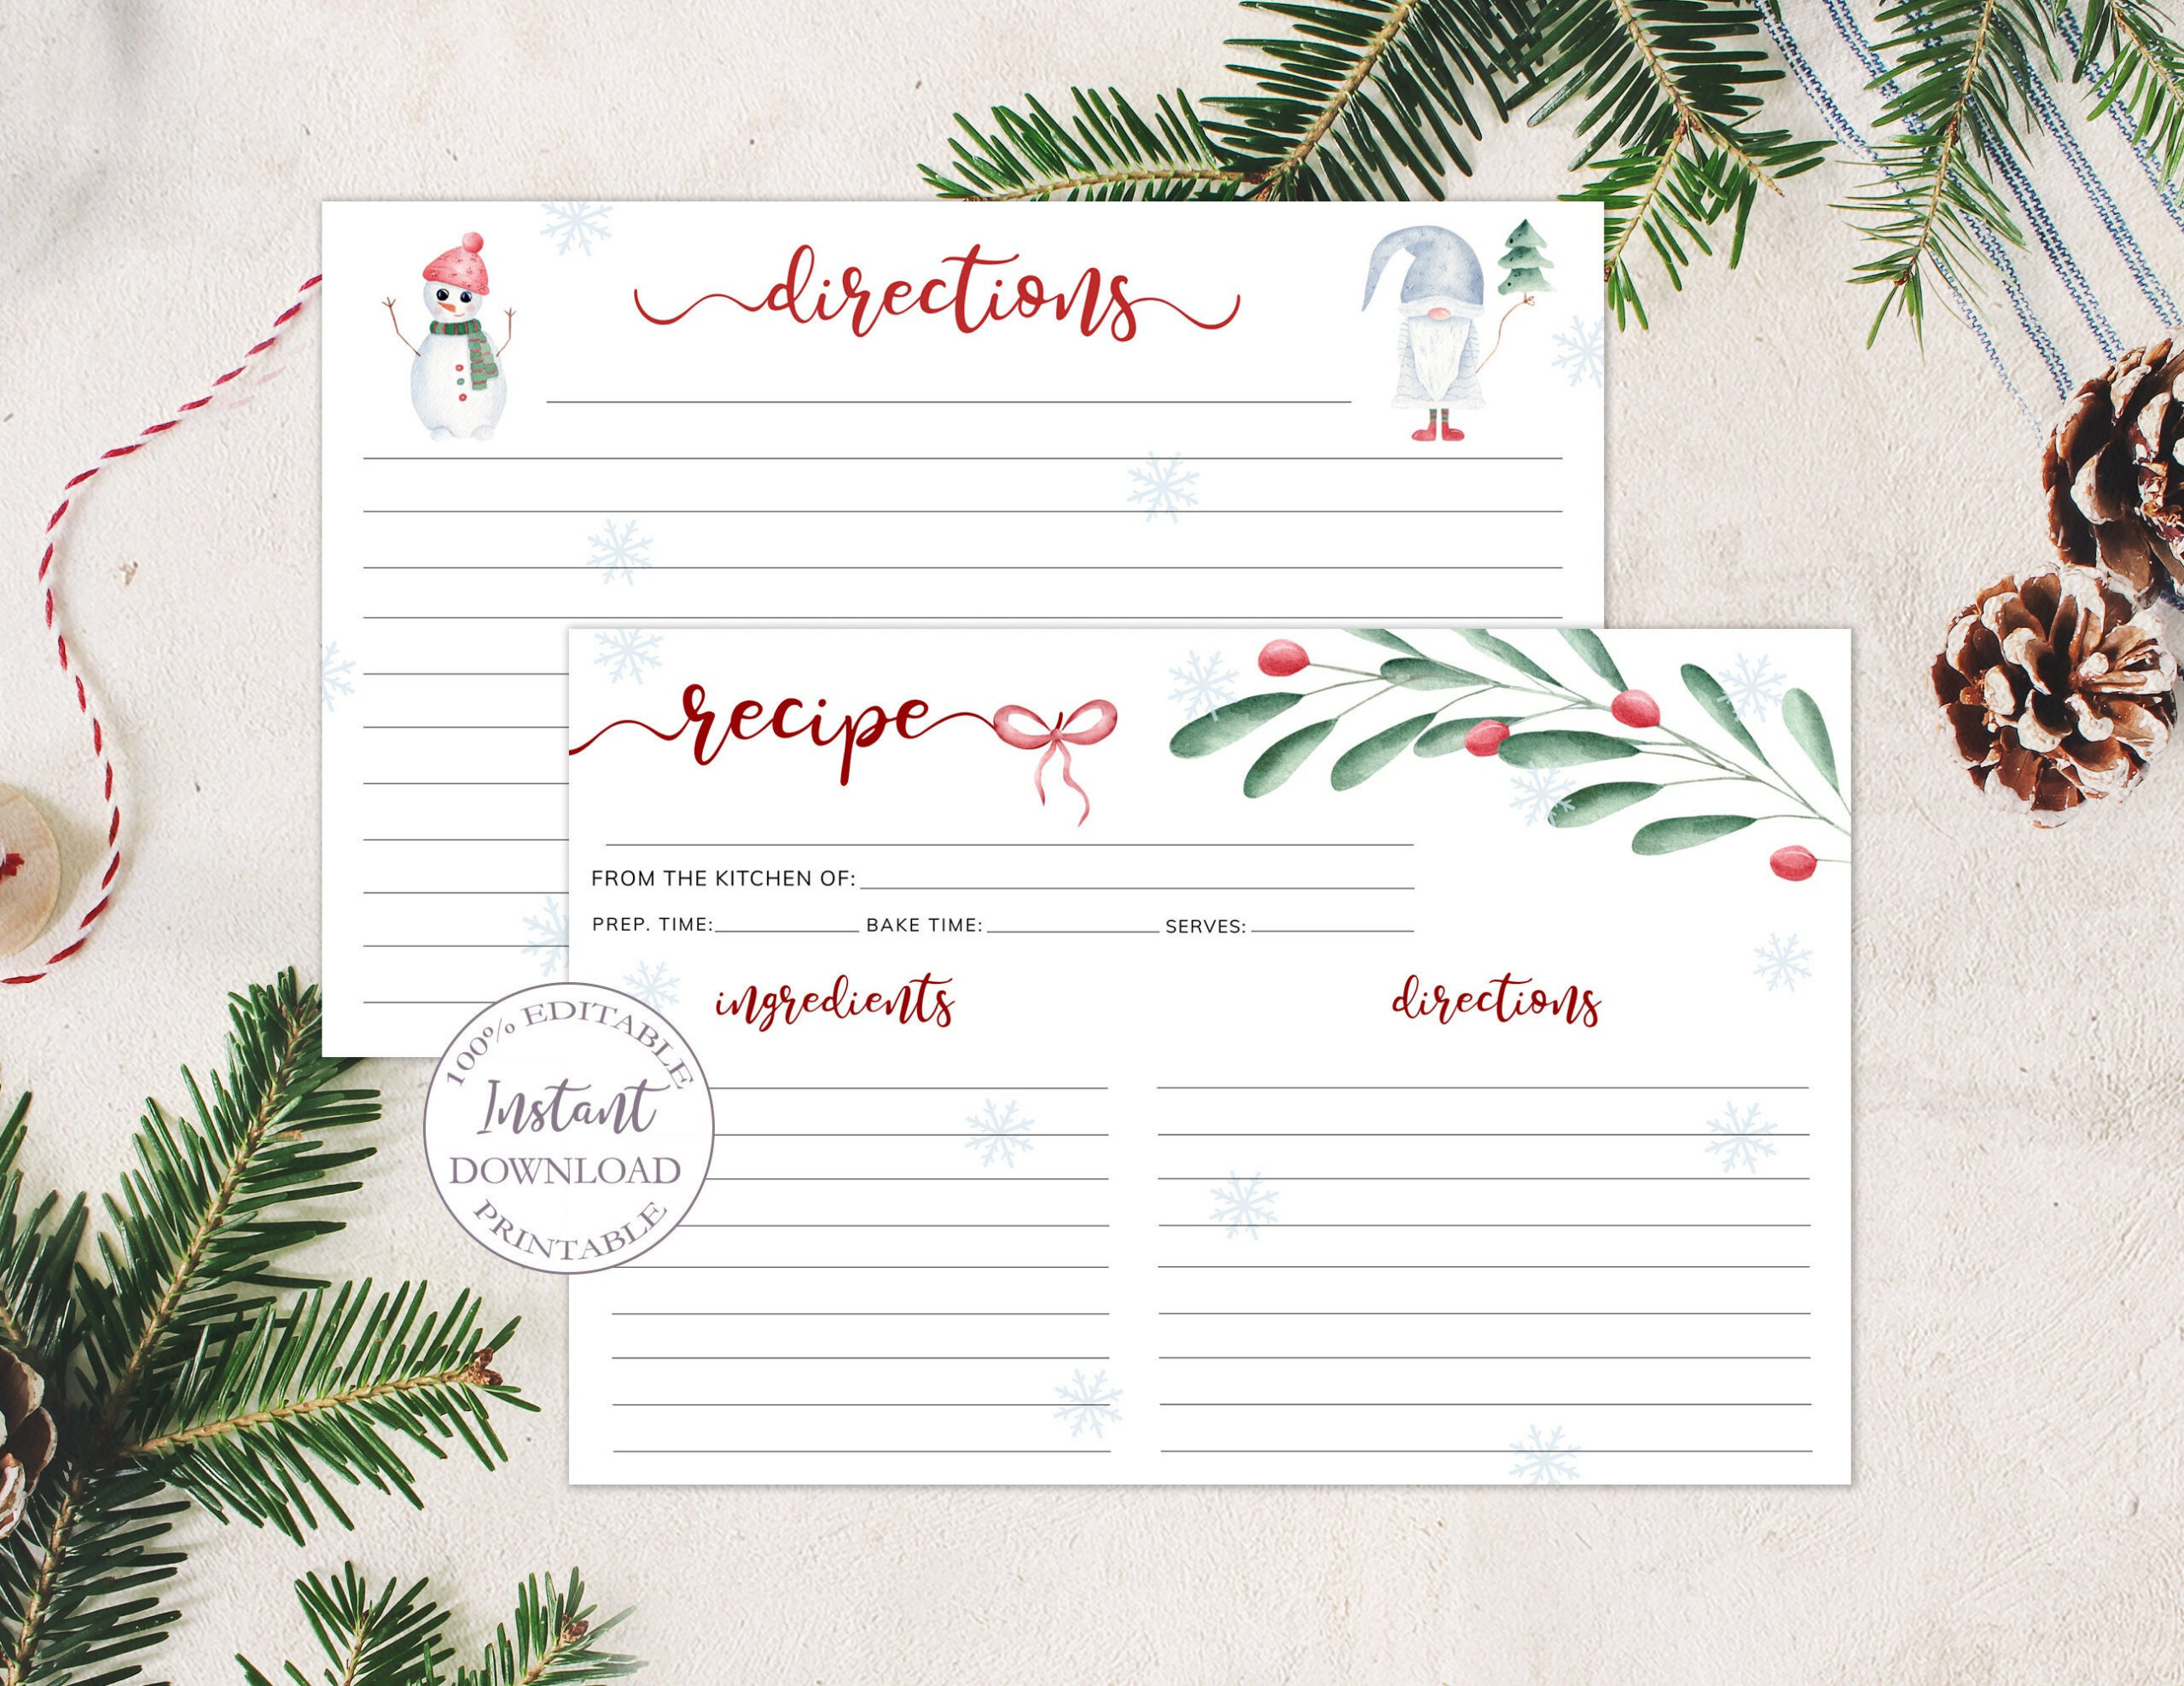 directions
recipe
FROM THE KITCHEN OF:
PREP. TIME: BAKE TIME: SERVES:
ingredients directions
100% EDITABLE
Instant
DOWNLOAD
PRINTABLE